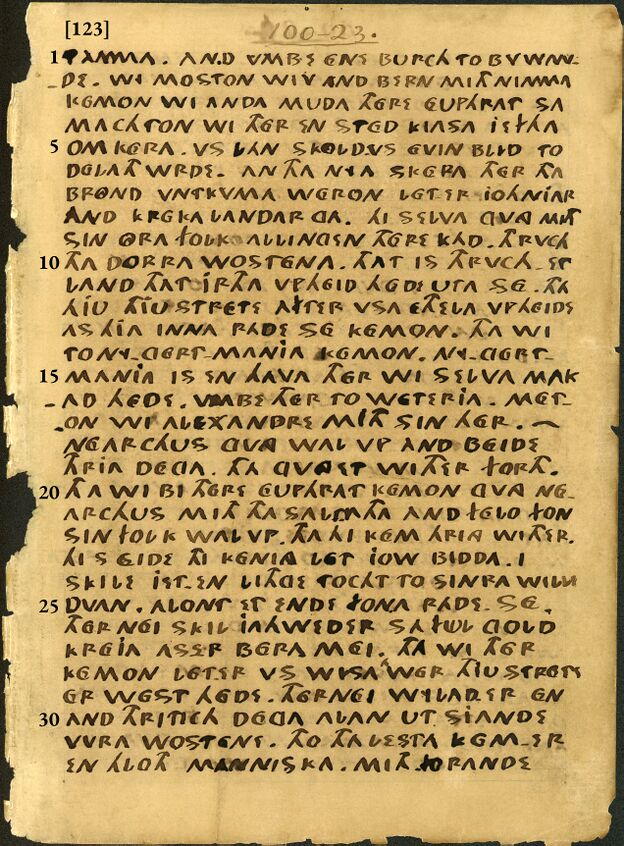 [123] 100-23.
1 TAMMA. AND VMBE ENE BURCH TO BVWAN-
-DE. WI MOSTON WIV AND BERN MITH NIMMA
KEMON WI ANDA MUDA THERE EUPHRAT SA
MACHTON WI THER EN STED KIASA IEFTHA
5 OMKERA. VS LAN SKOLD VS EVIN BLID TO
DELATH WRDE. AN THA NYA SKEPA THER THA
BROND VNTKVMA WERON LETER IOHNIAR
AND KREKALANDAR GA. HI SELVA GVNG MITH
SIN ORA FOLK ALLINGEN THERE KAD. THRVCH
10 THA DORRA WOSTENA. THAT IS THRVCH ET
LAND THAT IRTHA VPHEID HEDE UTA SE. THA
HIU THIU STRETE AFTER VSA ETHELA VPHEIDE
AS HIA INNA RADE SE KEMON. THA WI
TO NY-GERT-MANIA KEMON. NY-GERT-
15 MANIA IS EN HAVA THER WI SELVA MAK
-AD HEDE. VMBE THER TO WETERIA. MET-
-ON WI ALEXANDRE MITH SIN HER.
NEARCHUS GVNG WAL VP AND BEIDE
THRIA DEGA. THA GVNG ET WITHER FORTH.
20 THA WI BI THERE EUPHRAT KEMON GVNG NE-
ARCHUS MITH THA SALTHA AND FELO FON
SIN FOLK WAL VP. THA HI KEM HRIA WITHER.
HI SEIDE THI KENIG LET IOW BIDDA. I
SKILE IET EN LITHGE TOCHT TO SINRA WILLE
25 DVAN. ALONT ET ENDE FONA RADE SE.
THERNEI SKIL IAHWEDER SA FUL GOLD
KREJA ASSER BERA MEI. THA WI THER
KEMON LETER VS WISA WER THIU STRETE
ER WEST HEDE. THERNEI WYLADER EN
30 AND THRITICH DEGA ALAN UT SIANDE
VVRA WOSTENE. TO THA LESTA KEM-ER
EN HLOTH MANNISKA. MITH FORANDE